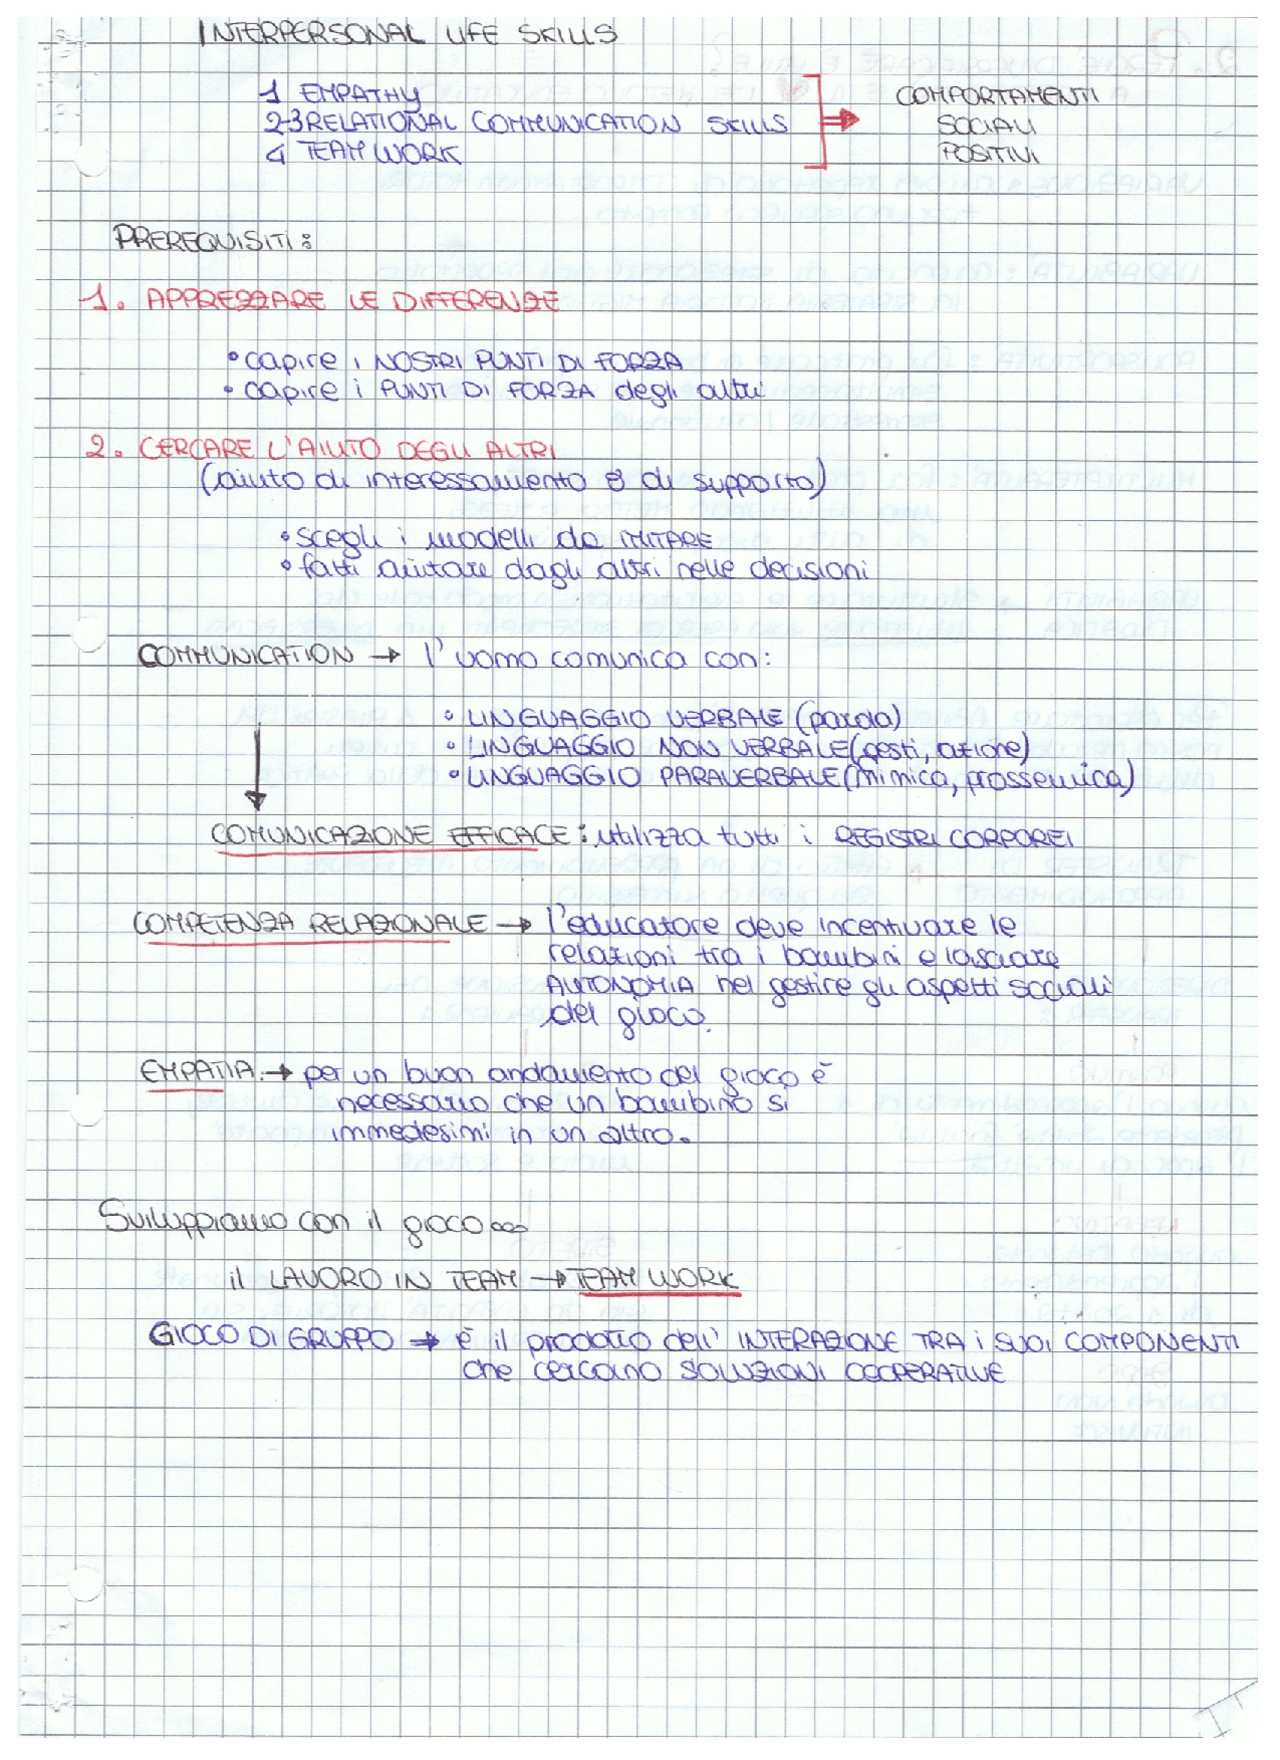 INTERPERSONAL LIFE SKILLS
1 EMPATHY
2-3 RELATIONAL COMMUNICATION SKILLS
4 TEAM WORK
COMPORTAMENTI
SOCIALI
POSITIVI
PREREQUISITI:
1. APPREZZARE LE DIFFERENZE
• capire i NOSTRI PUNTI DI FORZA
• capire i PUNTI DI FORZA degli altri
2. CERCARE L'AIUTO DEGLI ALTRI
(aiuto di interessamento e di supporto)
• scegli i modelli da IMITARE
• fatti aiutare dagli altri nelle decisioni
COMMUNICATION → l'uomo comunica con:
• LINGUAGGIO VERBALE (parola)
• LINGUAGGIO NON VERBALE (gesti, azione)
• LINGUAGGIO PARAVERBALE (mimica, prossemica)
COMUNICAZIONE EFFICACE: utilizza tutti i REGISTRI CORPOREI
COMPETENZA RELAZIONALE → l'educatore deve incentivare le
relazioni tra i bambini e lasciare
AUTONOMIA nel gestire gli aspetti sociali
del gioco.
EMPATIA → per un buon andamento del gioco è
necessario che un bambino si
immedesimi in un altro.
Sviluppiamo con il gioco...
il LAVORO IN TEAM → TEAM WORK
GIOCO DI GRUPPO → è il prodotto dell' INTERAZIONE TRA i SUOI COMPONENTI
che cercano SOLUZIONI COOPERATIVE